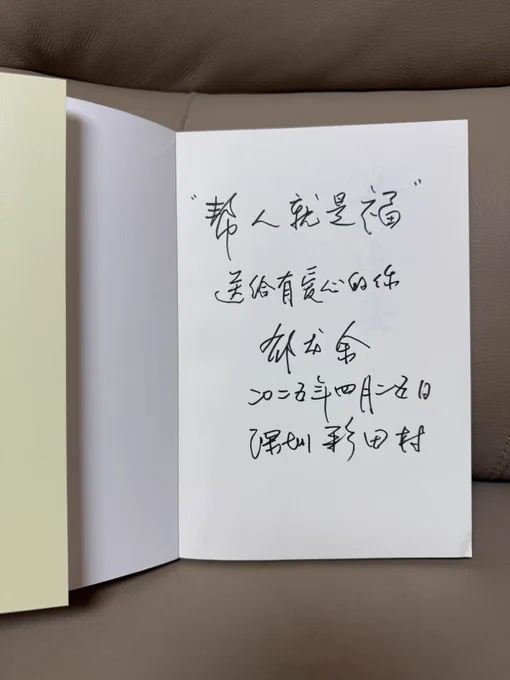 “帮人就是福”
送给有爱心的你
郁龙余
二〇二五年四月二五日
深圳彩田村